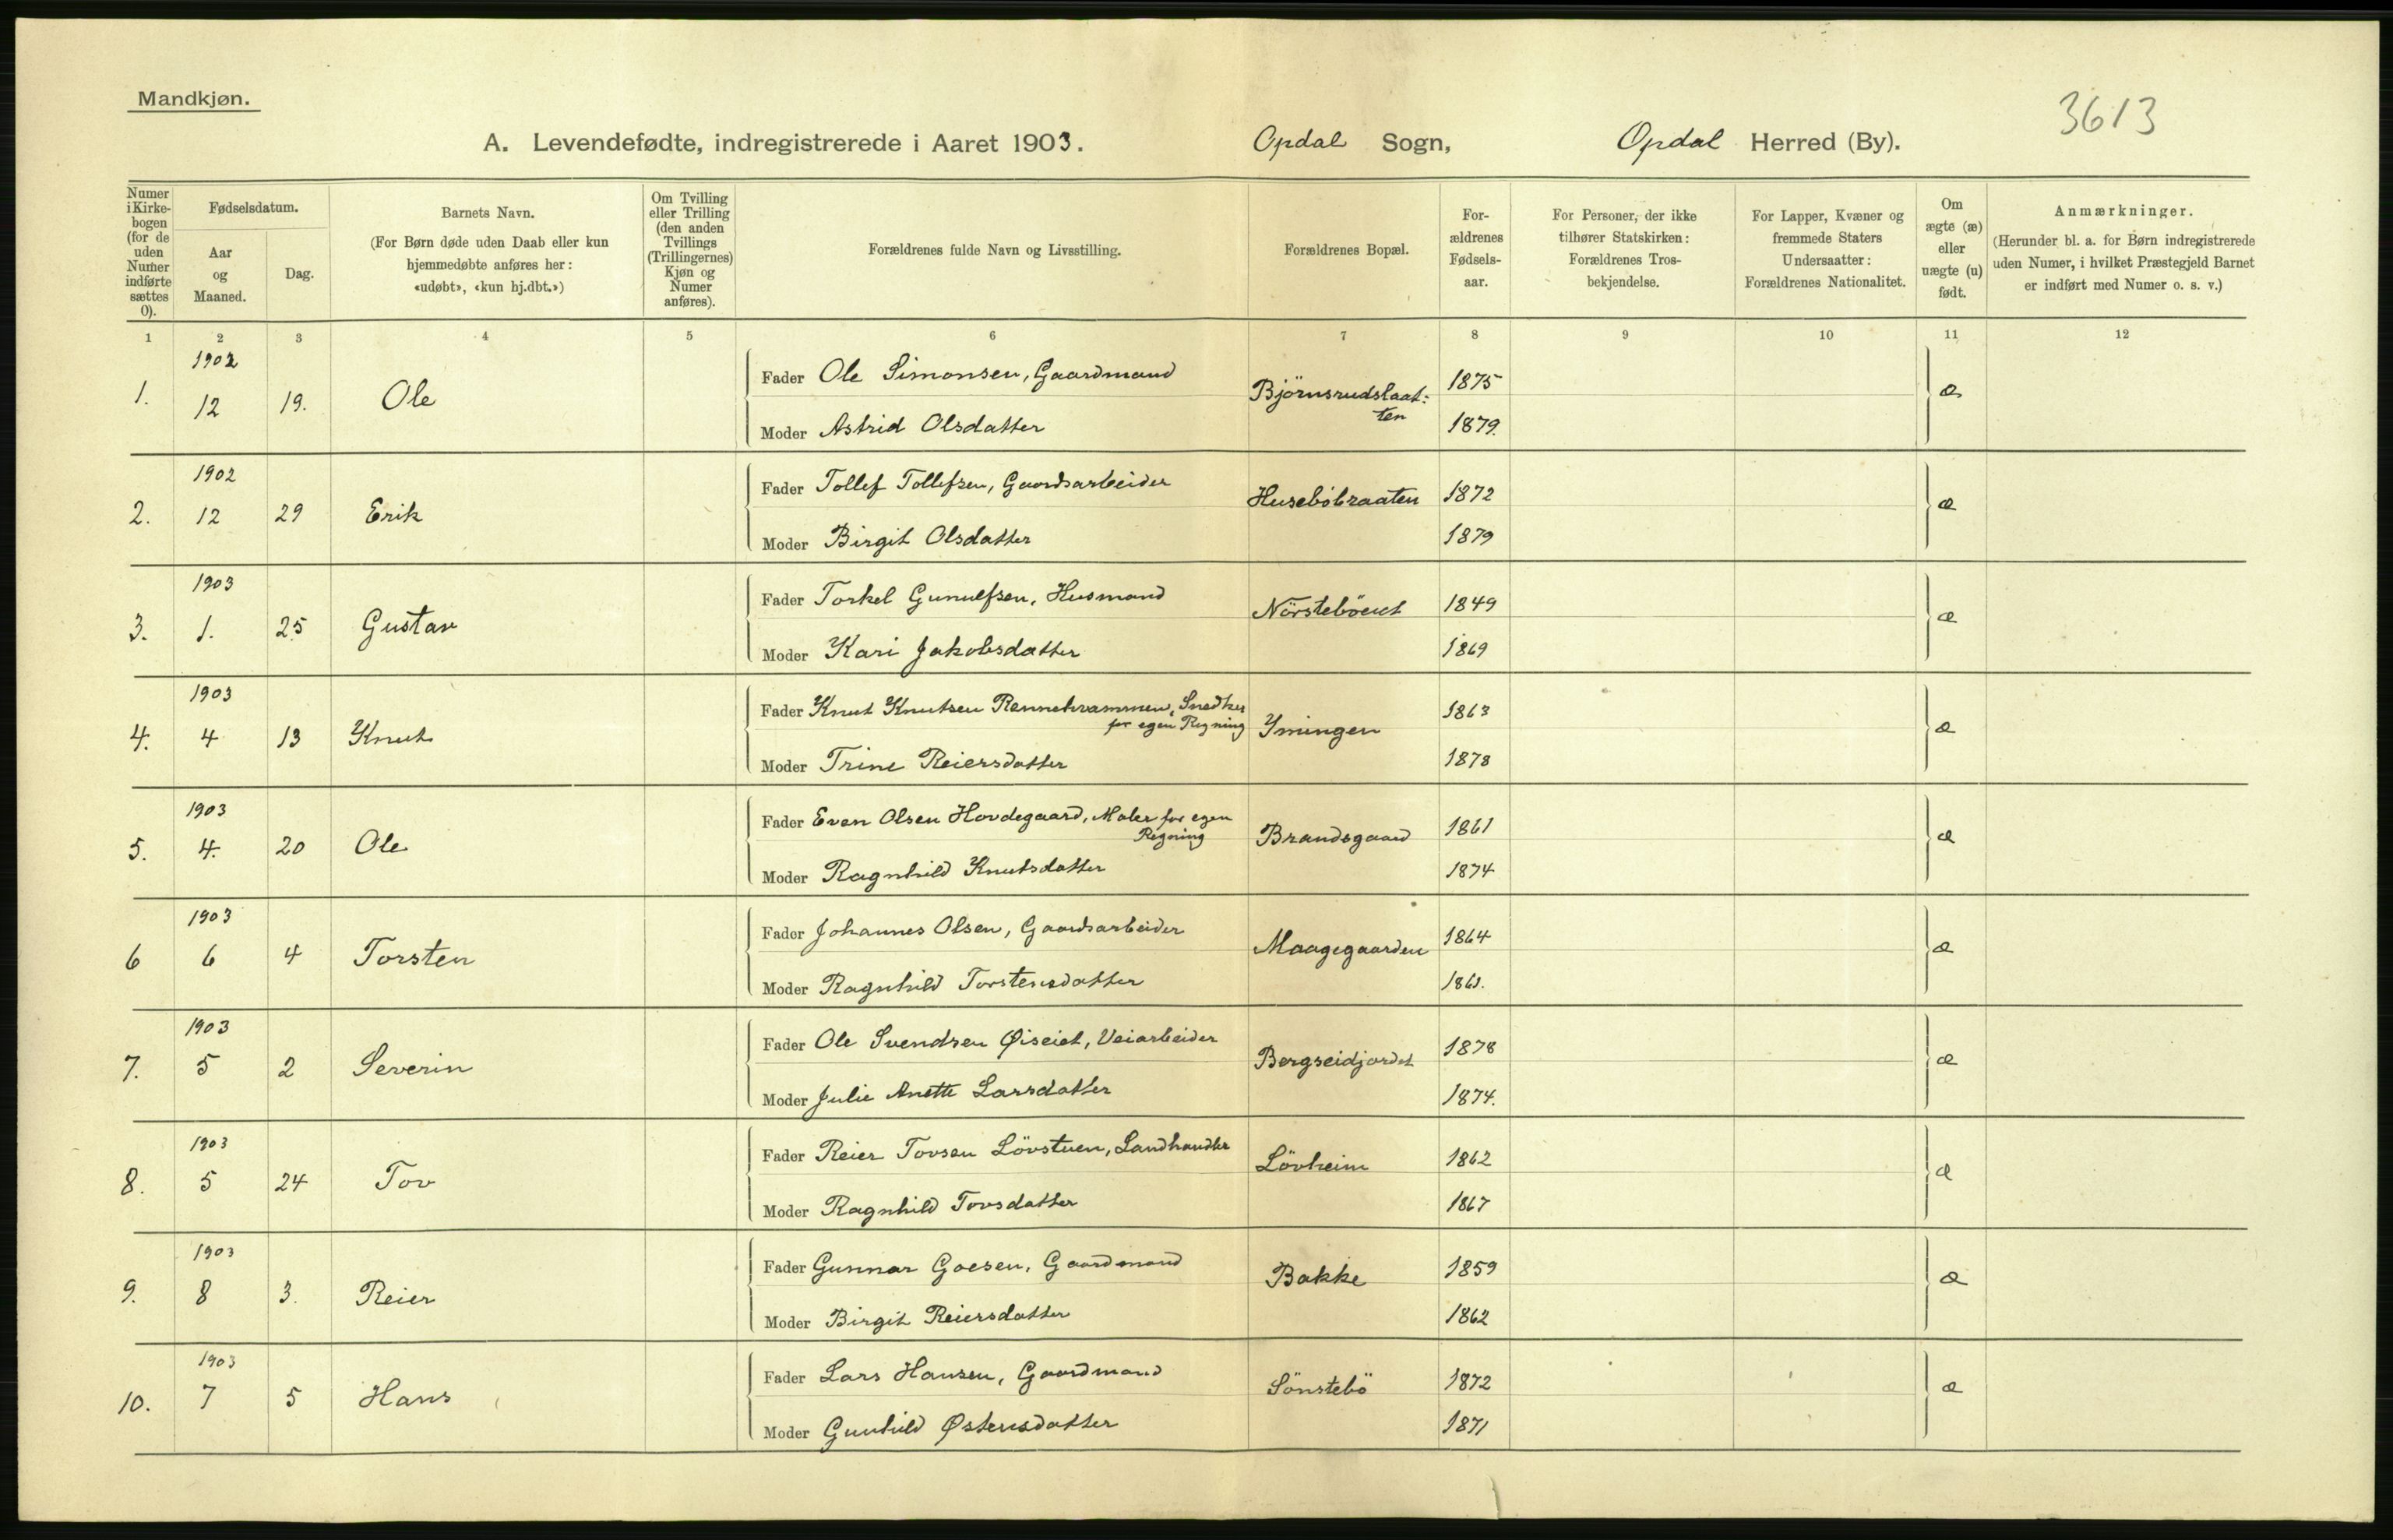 Mandkjøn.
3613
A. Levendefødte, indregistrerede i Aaret 1903. Opdal Sogn, Opdal Herred (By).
Numer i Kirkebogen (for de uden Numer indførte sættes 0).
Fødselsdatum.
Aar og Maaned.
Dag.
Barnets Navn.
(For Børn døde uden Daab eller kun hjemmedøbte anføres her: «udøbt», «kun hj.dbt.»)
Om Tvilling eller Trilling (den anden Tvillings (Trillingernes) Kjøn og Numer anføres).
Forældrenes fulde Navn og Livsstilling.
Forældrenes Bopæl.
For-ældrenes Fødsels-aar.
For Personer, der ikke tilhører Statskirken: Forældrenes Tros-bekjendelse.
For Lapper, Kvæner og fremmede Staters Undersaatter: Forældrenes Nationalitet.
Om ægte (æ) eller uægte (u) født.
Anmærkninger.
(Herunder bl. a. for Børn indregistrerede uden Numer, i hvilket Præstegjeld Barnet er indført med Numer o. s. v.)
1 2 3 4 5 6 7 8 9 10 11 12
1. 1902 12 19. Ole
Fader Ole Simonsen, Gaardmand Björnsrudslaat-ten 1875 æ
Moder Astrid Olsdatter 1879.
2. 1902 12 29 Erik
Fader Tollef Tollefsen, Gaardsarbeider Huseböbraaten 1872 æ
Moder Birgit Olsdatter 1879
3. 1903 1. 25 Gustav
Fader Torkel Gunulfsen, Husmand Nörsteböeiet 1849 æ
Moder Kari Jakobsdatter 1869
4. 1903 4 13 Knut
Fader Knut Knutsen Rennehvammen, Snedker for egen Regning Ymingen 1863 æ
Moder Trine Reiersdatter 1878
5. 1903 4. 20 Ole
Fader Even Olsen Hovdegaard, Maler for egen Regning Brandsgaard 1861 æ
Moder Ragnhild Knutsdatter 1874
6 1903 6 4 Torsten
Fader Johannes Olsen, Gaardsarbeider Maagegaarden 1864 æ
Moder Ragnhild Torstensdatter
7. 1903 5 2 Severin
Fader Ole Svendsen Øiseiet, Veiarbeider Bergseidjordet 1878 æ
Moder Julie Anette Larsdatter 1874.
8. 1903 5 24 Tov
Fader Reier Tovsen Lövstuen, Landhandler Lövheim 1862 æ
Moder Ragnhild Tovsdatter 1867
9. 1903 8 3. Reier
Fader Gunnar Goesen, Gaardmand Bakke 1859 æ
Moder Birgit Reiersdatter 1862
10. 1903 7 5 Hans
Fader Lars Hansen, Gaardmand Sönstebö 1872 æ
Moder Gunhild Østensdatter 1871